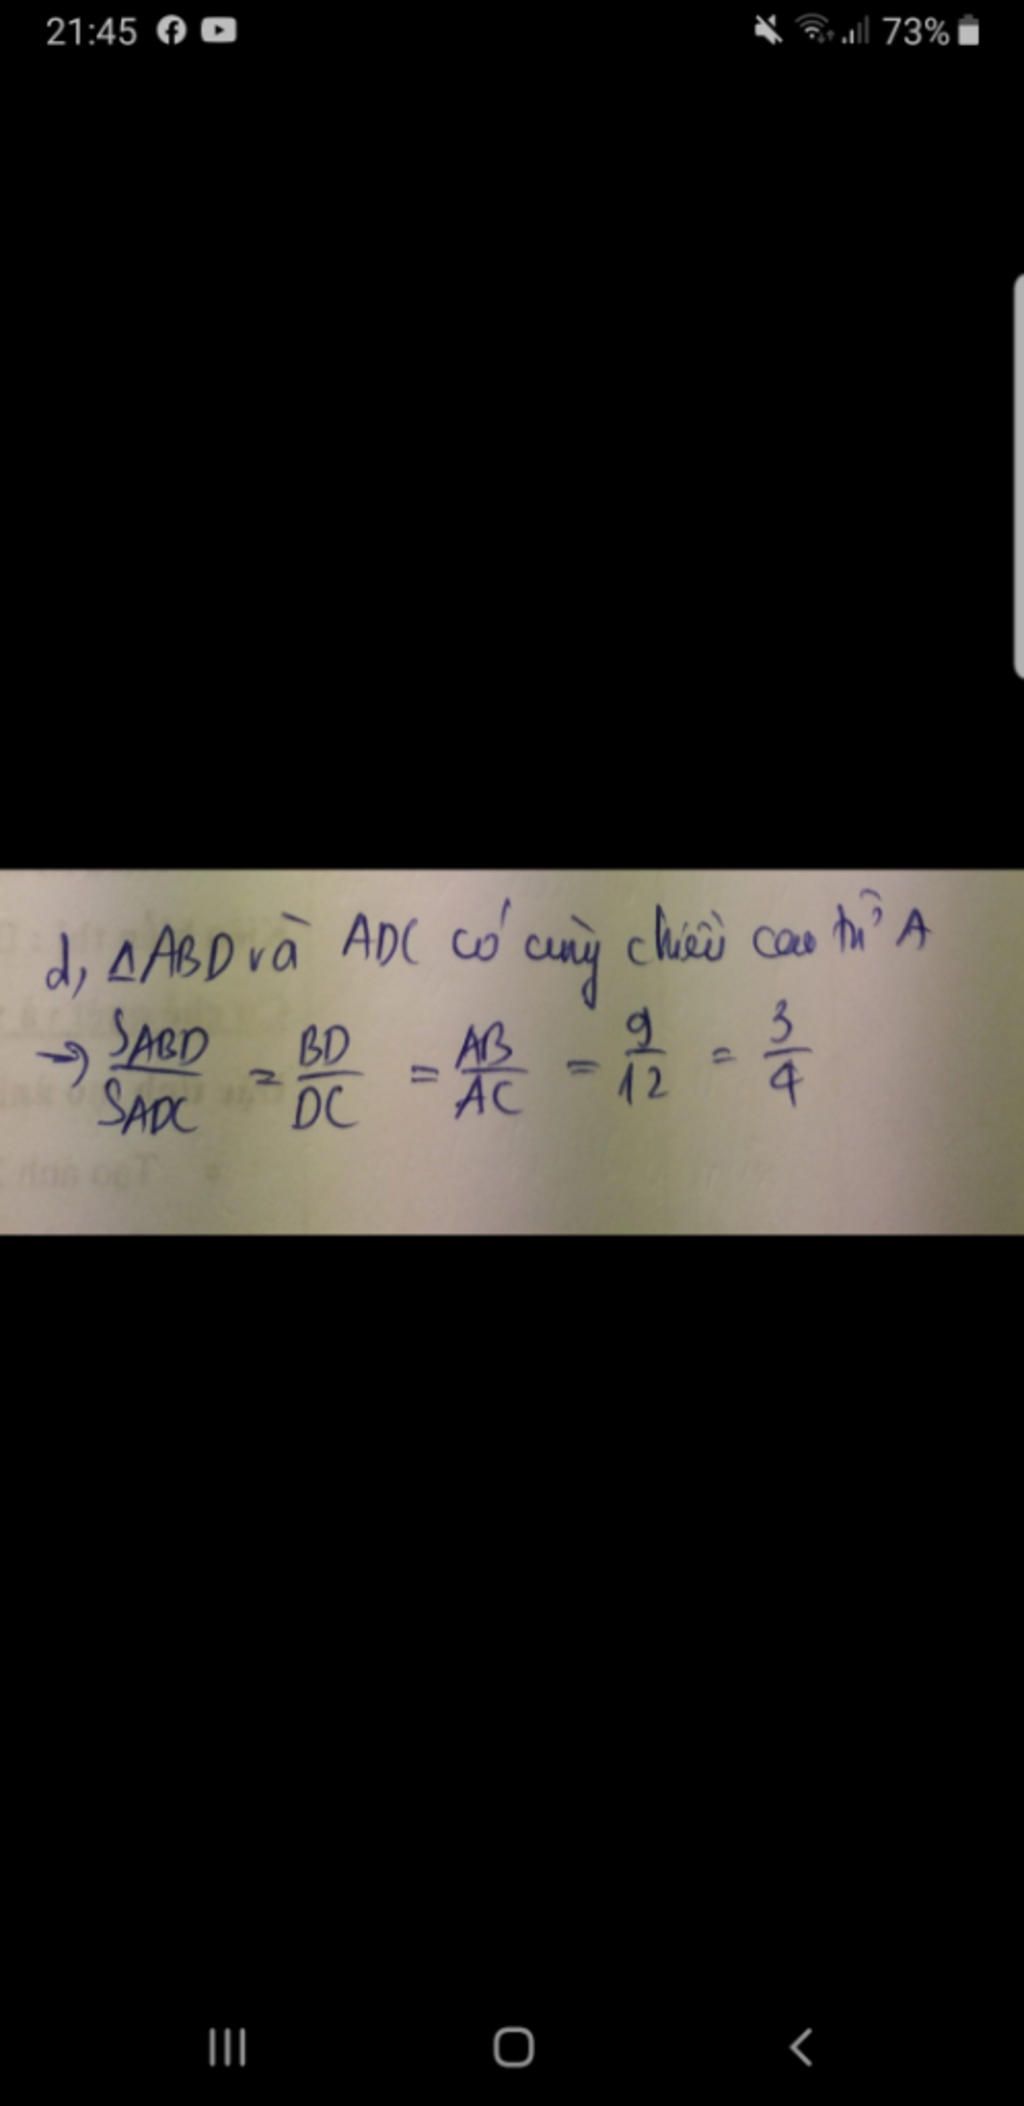 21:45
73%
d, ΔABD và ADC có cùng chiều cao từ A
→ SABD/SADC = BD/DC = AB/AC = 9/12 = 3/4